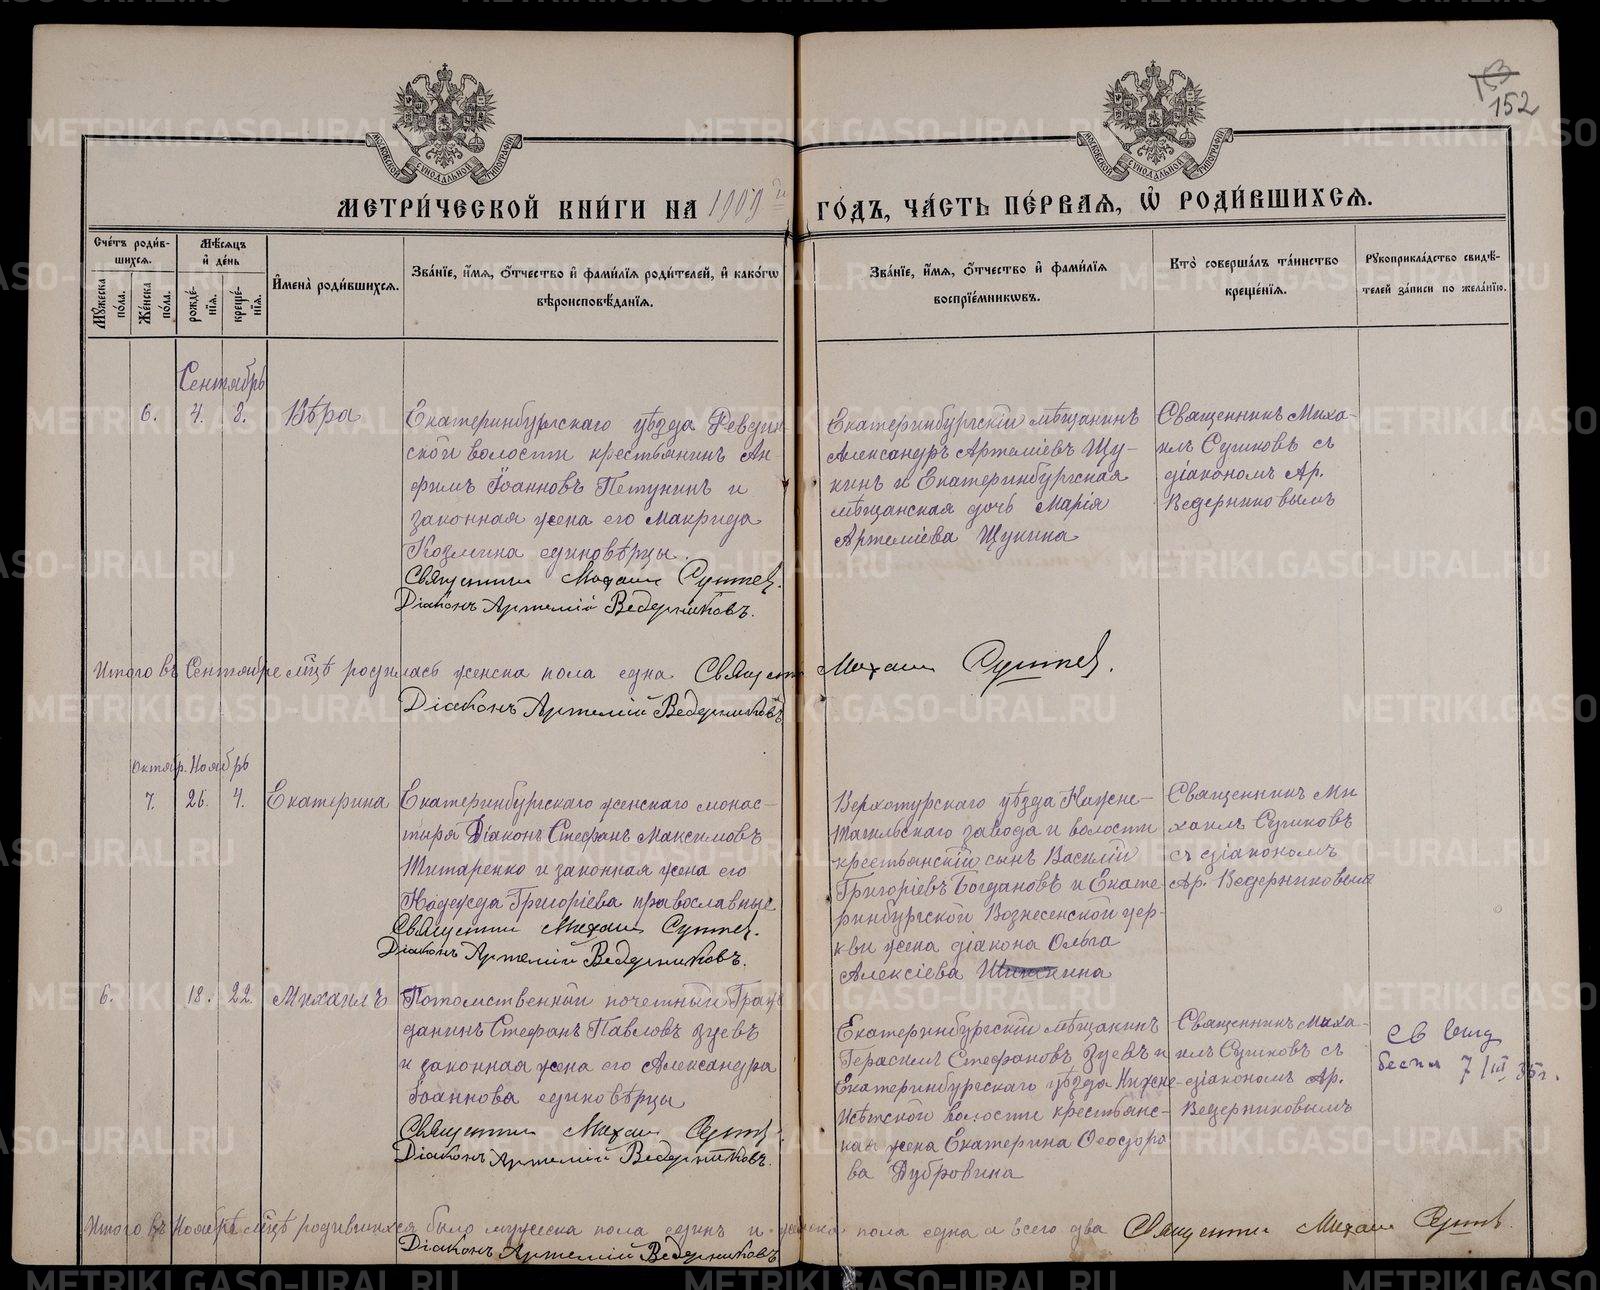 152
МЕТРИ́ЧЕСКОЙ КНИ́ГИ НА 1909 ГО́ДЪ, ЧА́СТЬ ПЕ́РВАЯ, Ѡ҆ РОДИ́ВШИХСЯ.
Сче́тъ роди́в-
шихся.
Мꙋ́жеска по́ла.
Же́нска по́ла.
Мѣ́сяцъ и҆ де́нь
рожде́-нїя.
креще́-нїя.
И҆мена̀ роди́вшихся.
Зва́нїе, и҆́мя, ѻ҆́тчество и҆ фами́лїя роди́телей, и҆ како́гѡ
вѣроисповѣ́данїя.
Зва́нїе, и҆́мя, ѻ҆́тчество и҆ фами́лїя
воспрїе́мникѡвъ.
Кто̀ соверша́лъ та́инство
креще́нїя.
Рꙋкоприкла́дство свидѣ́-
телей за́писи по жела́нїю.
Сентябрь
6. 4. 8. Вѣра
Екатеринбургскаго уѣзда Ревдин-
ской волости крестьянинъ Ан-
фимъ Іоанновъ Петунинъ и
законная жена его Макрида
Козмина единовѣрцы.
Священникъ Михаилъ Сушковъ.
Діаконъ Артемій Ведерниковъ.
Екатеринбургскій мѣщанинъ
Александръ Артеміевъ Щу-
кинъ и Екатеринбургская
мѣщанская дочь Марія
Артеміева Щукина
Священникъ Миха-
илъ Сушковъ съ
діакономъ Ар.
Ведерниковымъ
Итого въ Сентябрѣ мцѣ родилась женска пола одна Священникъ Михаилъ Сушковъ.
Діаконъ Артемій Ведерниковъ
Октябр. Ноябрь
7. 26. 4. Екатерина
Екатеринбургскаго женскаго монас-
тыря Діаконъ Стефанъ Максимовъ
Титаренко и законная жена его
Надежда Григоріева православные
Священникъ Михаилъ Сушковъ.
Діаконъ Артемій Ведерниковъ.
Верхотурскаго уѣзда Нижне-
Тагильскаго завода и волости
крестьянскій сынъ Василій
Григоріевъ Богдановъ и Екате-
ринбургской Вознесенской цер-
кви жена діакона Ольга
Алексіева
Священникъ Ми
хаилъ Сушковъ
съ діакономъ
Ар. Ведерниковымъ
6. 18. 22. Михаилъ
Потомственный почетный Граж-
данинъ Стефанъ Павловъ Зуевъ
и законная жена его Александра
Іоаннова единовѣрцы
Священникъ Михаилъ Сушковъ
Діаконъ Артемій Ведерниковъ.
Екатеринбургскій мѣщанинъ
Герасимъ Стефановъ Зуевъ и
Екатеринбургскаго уѣзда Нижне-
Исѣтской волости крестьянс-
кая жена Екатерина Ѳеодоро-
ва Дубровина
Священникъ Миха-
илъ Сушковъ съ
діакономъ Ар.
Ведерниковымъ
7/III 35 г.
Итого въ Ноябрѣ мцѣ родившихся было мужеска пола одинъ и женска пола одна а всего два Священникъ Михаилъ Сушковъ
Діаконъ Артемій Ведерниковъ
METRIKI.GASO-URAL.RU